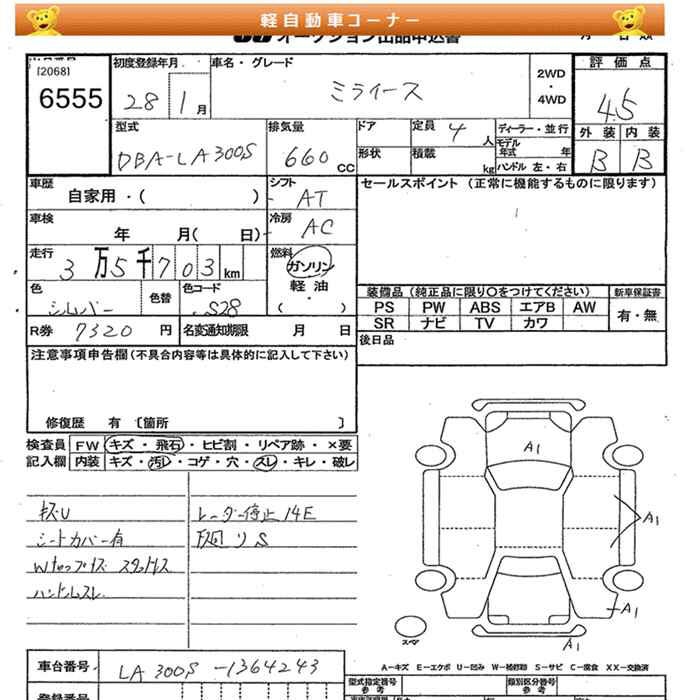 軽自動車コーナー
オークション出品申込書
[2068]
6555
初度登録年月
28 1月
車名・グレード
ミライース
2WD
・
4WD
評価点
4.5
外装 内装
B B
型式
DBA-LA300S
排気量
660 CC
ドア
形状
定員 4人
積載 kg
ディーラー・並行
モデル年式 年
ハンドル 左・右
車歴
自家用・( )
シフト
AT
セールスポイント (正常に機能するものに限ります)
車検
年 月( 日)
冷房
AC
走行
3万5千703km
燃料
ガソリン
軽油
( )
色
シルバー
色替
色コード
S28
R券 7320 円
名変通知期限 月 日
装備品 (純正品に限り○をつけてください)
新車保証書
PS PW ABS エアB AW
SR ナビ TV カワ
有・無
後日品
注意事項申告欄(不具合内容等は具体的に記入して下さい)
修復歴 有 〔箇所 〕
検査員
記入欄
FW キズ・飛石・ヒビ割・リペア跡・×要
内装 キズ・汚レ・コゲ・穴・スレ・キレ・破レ
キズU
シートカバー有
ハンドルスレ
レーダー停止14E
下回りS
A1
A1
A1
A1
スペア
A-キズ E-エクボ U-凹み W-補修跡 S-サビ C-腐食 XX-交換済
車台番号 LA300S-1364243
登録番号
型式指定番号
参考
類別区分番号
参考